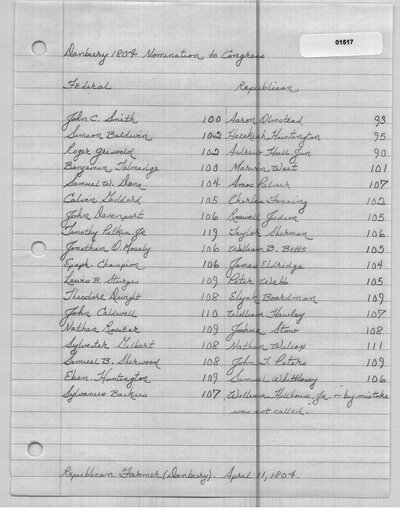 01517
Danbury 1804 Nomination to Congress
Federal Republican
John C. Smith 100 Aaron Olmstead 93
Simeon Baldwin 102 Hezekiah Huntington 95
Roger Griswold 102 Andrew Hull Jun 90
Benjamin Talmadge 100 Marvin Wait 101
Samuel W. Dana 104 Amos Palmer 107
Calvin Goddard 105 Charles Fanning 102
John Davenport 106 Roswell Judson 105
Timothy Pitkin Jr. 119 Taylor Sherman 106
Jonathan O. Mosely 106 William B. Betts 105
Epaph. Champion 106 James Eldridge 104
Lewis B. Sturges 109 Peter Webb 105
Theodore Dwight 108 Elijah Boardman 109
John Caldwell 110 William Hawley 107
Nathan 109 Joshua Stow 108
Sylvester Gilbert 108 Nathan Wilcox 111
Samuel B. Sherwood 108 John T. Peters 109
Eben. Huntington 109 Samuel Whittlesey 106
Sylvanus Backus 107 William Hillhouse Jr. - "by mistake
was not called.
Republican Farmer (Danbury). April 11, 1804.